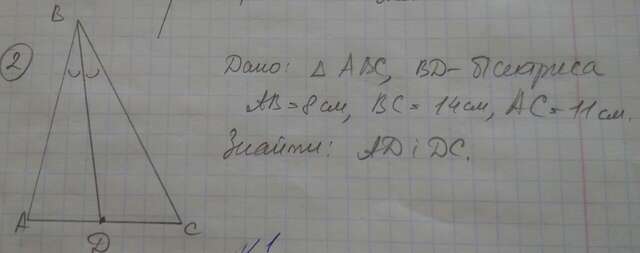 B
2
Дано: △ ABC, BD - бісектриса
AB = 8 см, BC = 14 см, AC = 11 см.
Знайти: AD і DC.
A
D
C